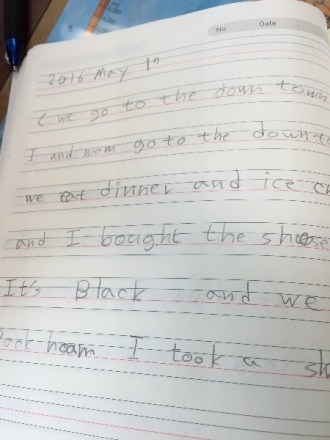 No. Date
2016 May 1
( we go to the down town
I and mom go to the downt
we eat dinner and ice cr
and I bought the shoes
It's Black and we
Back hoam I took a sh